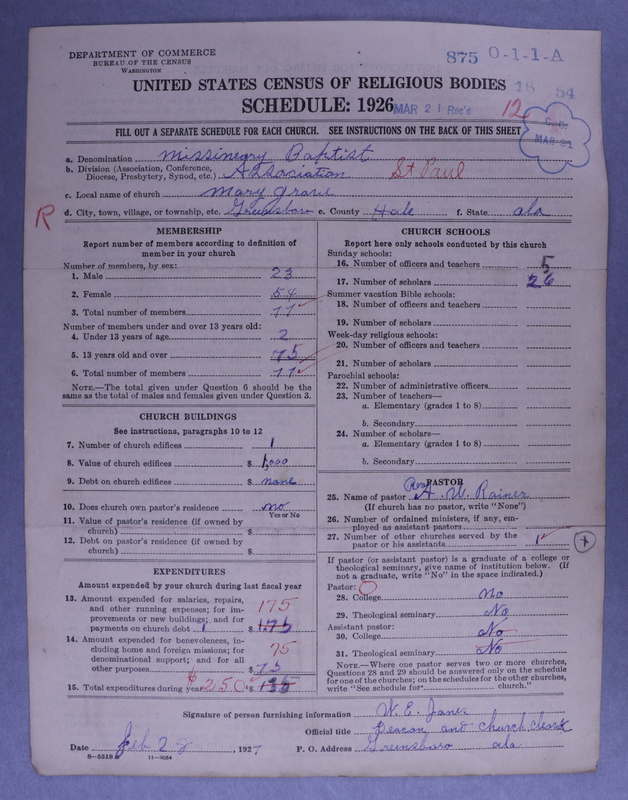 DEPARTMENT OF COMMERCE
BUREAU OF THE CENSUS
WASHINGTON
875 O-1-1-A
UNITED STATES CENSUS OF RELIGIOUS BODIES
18 54
SCHEDULE: 1926
MAR 21 Rec'd
12
MAR 21
FILL OUT A SEPARATE SCHEDULE FOR EACH CHURCH. SEE INSTRUCTIONS ON THE BACK OF THIS SHEET
a. Denomination Missionary Baptist
b. Division (Association, Conference, Diocese, Presbytery, Synod, etc.) Association St Paul
c. Local name of church Mary grove
R
d. City, town, village, or township, etc. Greensboro e. County Hale f. State ala
MEMBERSHIP
Report number of members according to definition of
member in your church
Number of members, by sex:
1. Male 23
2. Female 54
3. Total number of members 77
Number of members under and over 13 years old:
4. Under 13 years of age 2
5. 13 years old and over 75
6. Total number of members 77
NOTE.—The total given under Question 6 should be the
same as the total of males and females given under Question 3.
CHURCH BUILDINGS
See instructions, paragraphs 10 to 12
7. Number of church edifices 1
8. Value of church edifices $ 1,000
9. Debt on church edifices $ none
10. Does church own pastor's residence no
Yes or No
11. Value of pastor's residence (if owned by
church) $
12. Debt on pastor's residence (if owned by
church) $
EXPENDITURES
Amount expended by your church during last fiscal year
13. Amount expended for salaries, repairs,
and other running expenses; for im-
provements or new buildings; and for
payments on church debt $ 1.75
175
14. Amount expended for benevolences, in-
cluding home and foreign missions; for
denominational support; and for all
other purposes $ 75
75
15. Total expenditures during year $250 $
CHURCH SCHOOLS
Report here only schools conducted by this church
Sunday schools:
16. Number of officers and teachers 5
17. Number of scholars 26
Summer vacation Bible schools:
18. Number of officers and teachers
19. Number of scholars
Week-day religious schools:
20. Number of officers and teachers
21. Number of scholars
Parochial schools:
22. Number of administrative officers
23. Number of teachers—
a. Elementary (grades 1 to 8)
b. Secondary
24. Number of scholars—
a. Elementary (grades 1 to 8)
b. Secondary
PASTOR
25. Name of pastor Rev A. W. Rainer
(If church has no pastor, write "None")
26. Number of ordained ministers, if any, em-
ployed as assistant pastors
27. Number of other churches served by the
pastor or his assistants 1
If pastor (or assistant pastor) is a graduate of a college or
theological seminary, give name of institution below. (If
not a graduate, write "No" in the space indicated.)
Pastor:
28. College no
29. Theological seminary No
Assistant pastor:
30. College No
31. Theological seminary No
NOTE.—Where one pastor serves two or more churches,
Questions 28 and 29 should be answered only on the schedule
for one of the churches; on the schedules for the other churches,
write "See schedule for church."
Signature of person furnishing information W. E. Janes
Official title Deacon and church clerk
Date Feb 28, 1927 P. O. Address Greensboro ala.
8—5518 a 11—9084